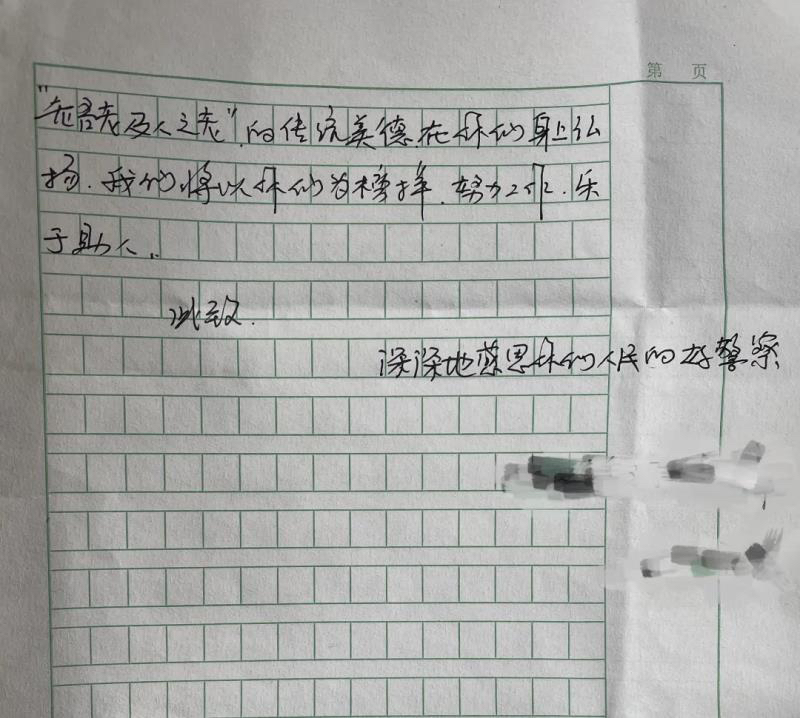 第 页
"老吾老及人之老",的传统美德在你们身上弘
扬.我们将以你们为榜样.努力工作.乐
于助人.
此致.
深深地感恩你们人民的好警察